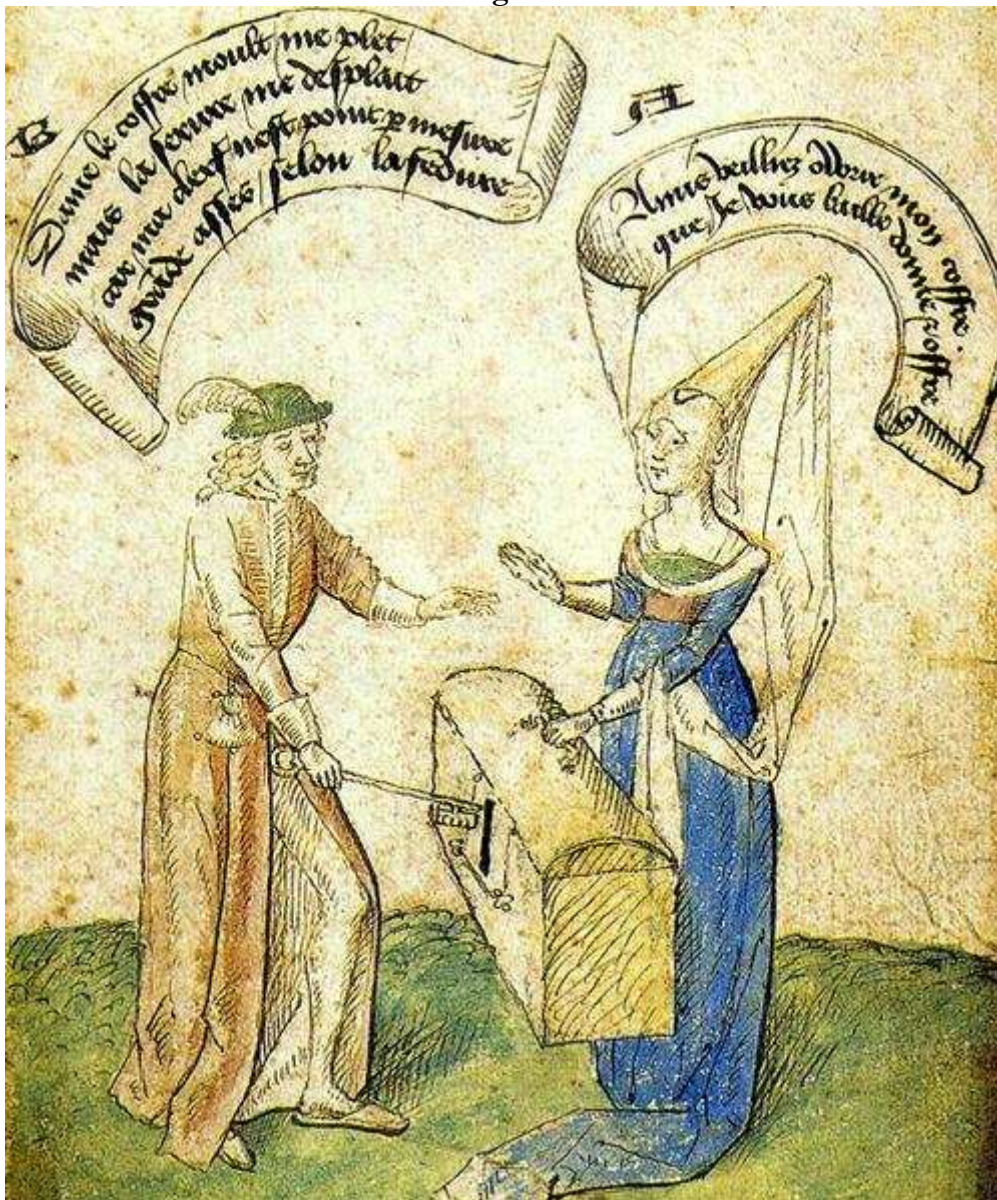 B
Dame le coffre moult me plet
mais la serure me desplait
car ma clef nest point p mesure
asses selon la
A
Amis veilliez mon coffre.
que Je vous baille donne offre